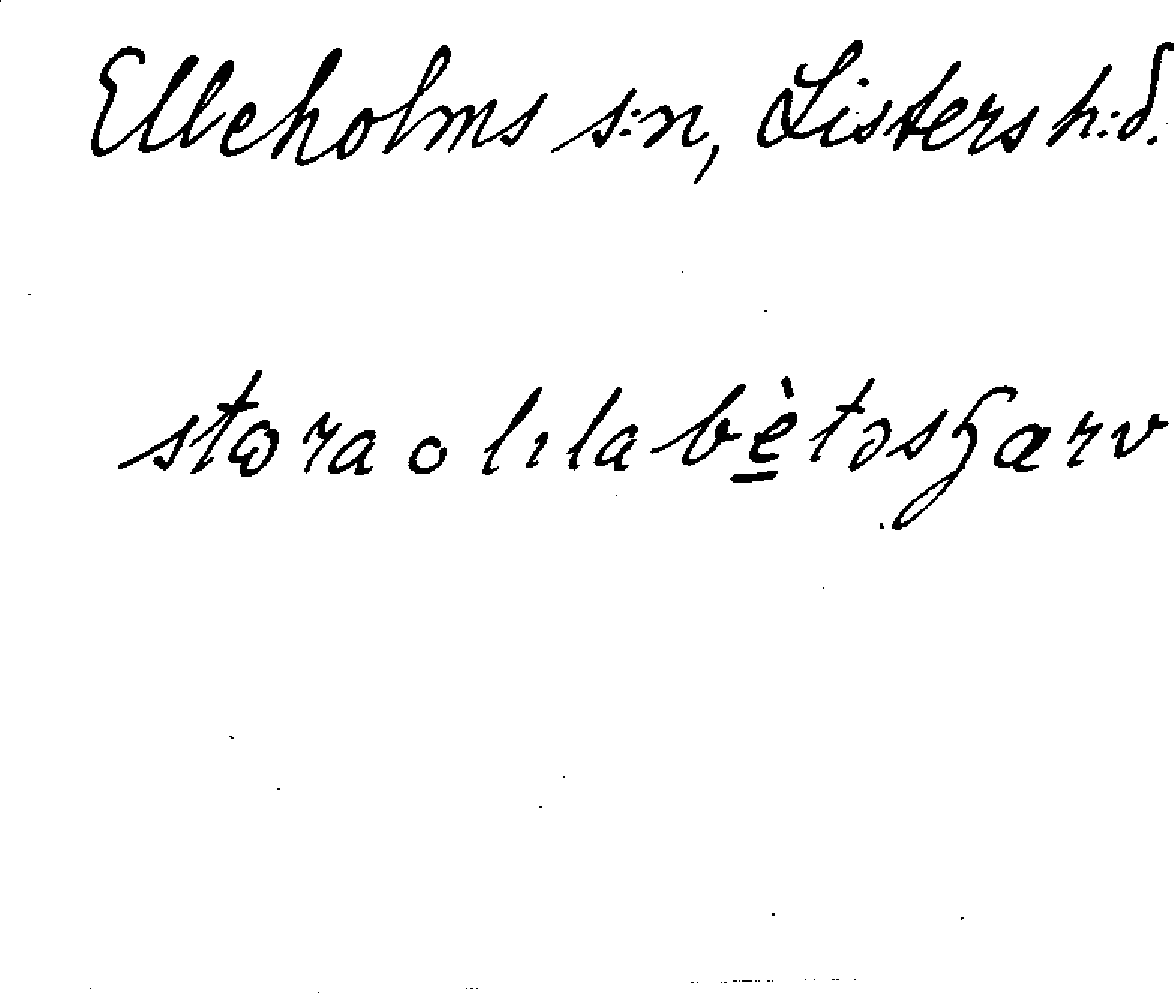 Elleholms s:n, Listers h:d.
stora o lıla bètəsꞕarv